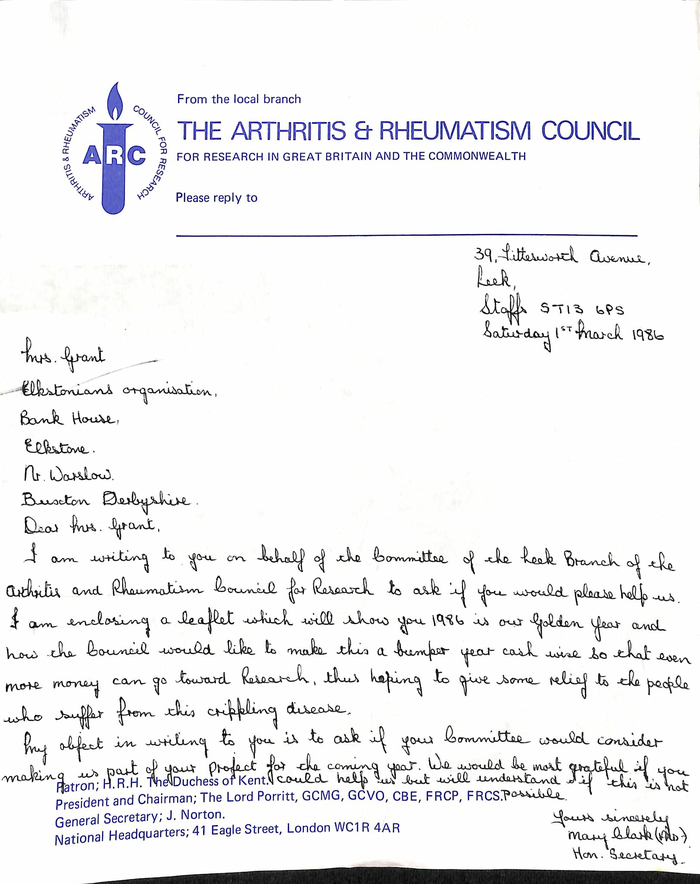 From the local branch
THE ARTHRITIS & RHEUMATISM COUNCIL
FOR RESEARCH IN GREAT BRITAIN AND THE COMMONWEALTH
Please reply to
ARTHRITIS & RHEUMATISM COUNCIL FOR RESEARCH
ARC
39, Litterworth Avenue,
Leek,
Staffs ST13 6PS
Saturday 1ST March 1986
Mrs. Grant
Elkstonians organisation,
Bank House,
Elkstone.
Nr. Warslow.
Buxton Derbyshire.
Dear Mrs. Grant,
I am writing to you on behalf of the Committee of the Leek Branch of the
Arthritis and Rheumatism Council for Research to ask if you would please help us.
I am enclosing a leaflet which will show you 1986 is our Golden Year and
how the Council would like to make this a bumper year cash wise so that even
more money can go toward Research, thus hoping to give some relief to the people
who suffer from this crippling disease.
My object in writing to you is to ask if your Committee would consider
making us part of your Project for the coming year. We would be most grateful if you
could help us but will understand if this is not
possible
Patron; H.R.H. The Duchess of Kent.
President and Chairman; The Lord Porritt, GCMG, GCVO, CBE, FRCP, FRCS.
General Secretary; J. Norton.
National Headquarters; 41 Eagle Street, London WC1R 4AR
Yours sincerely
Mary Clark (Mrs)
Hon. Secretary.